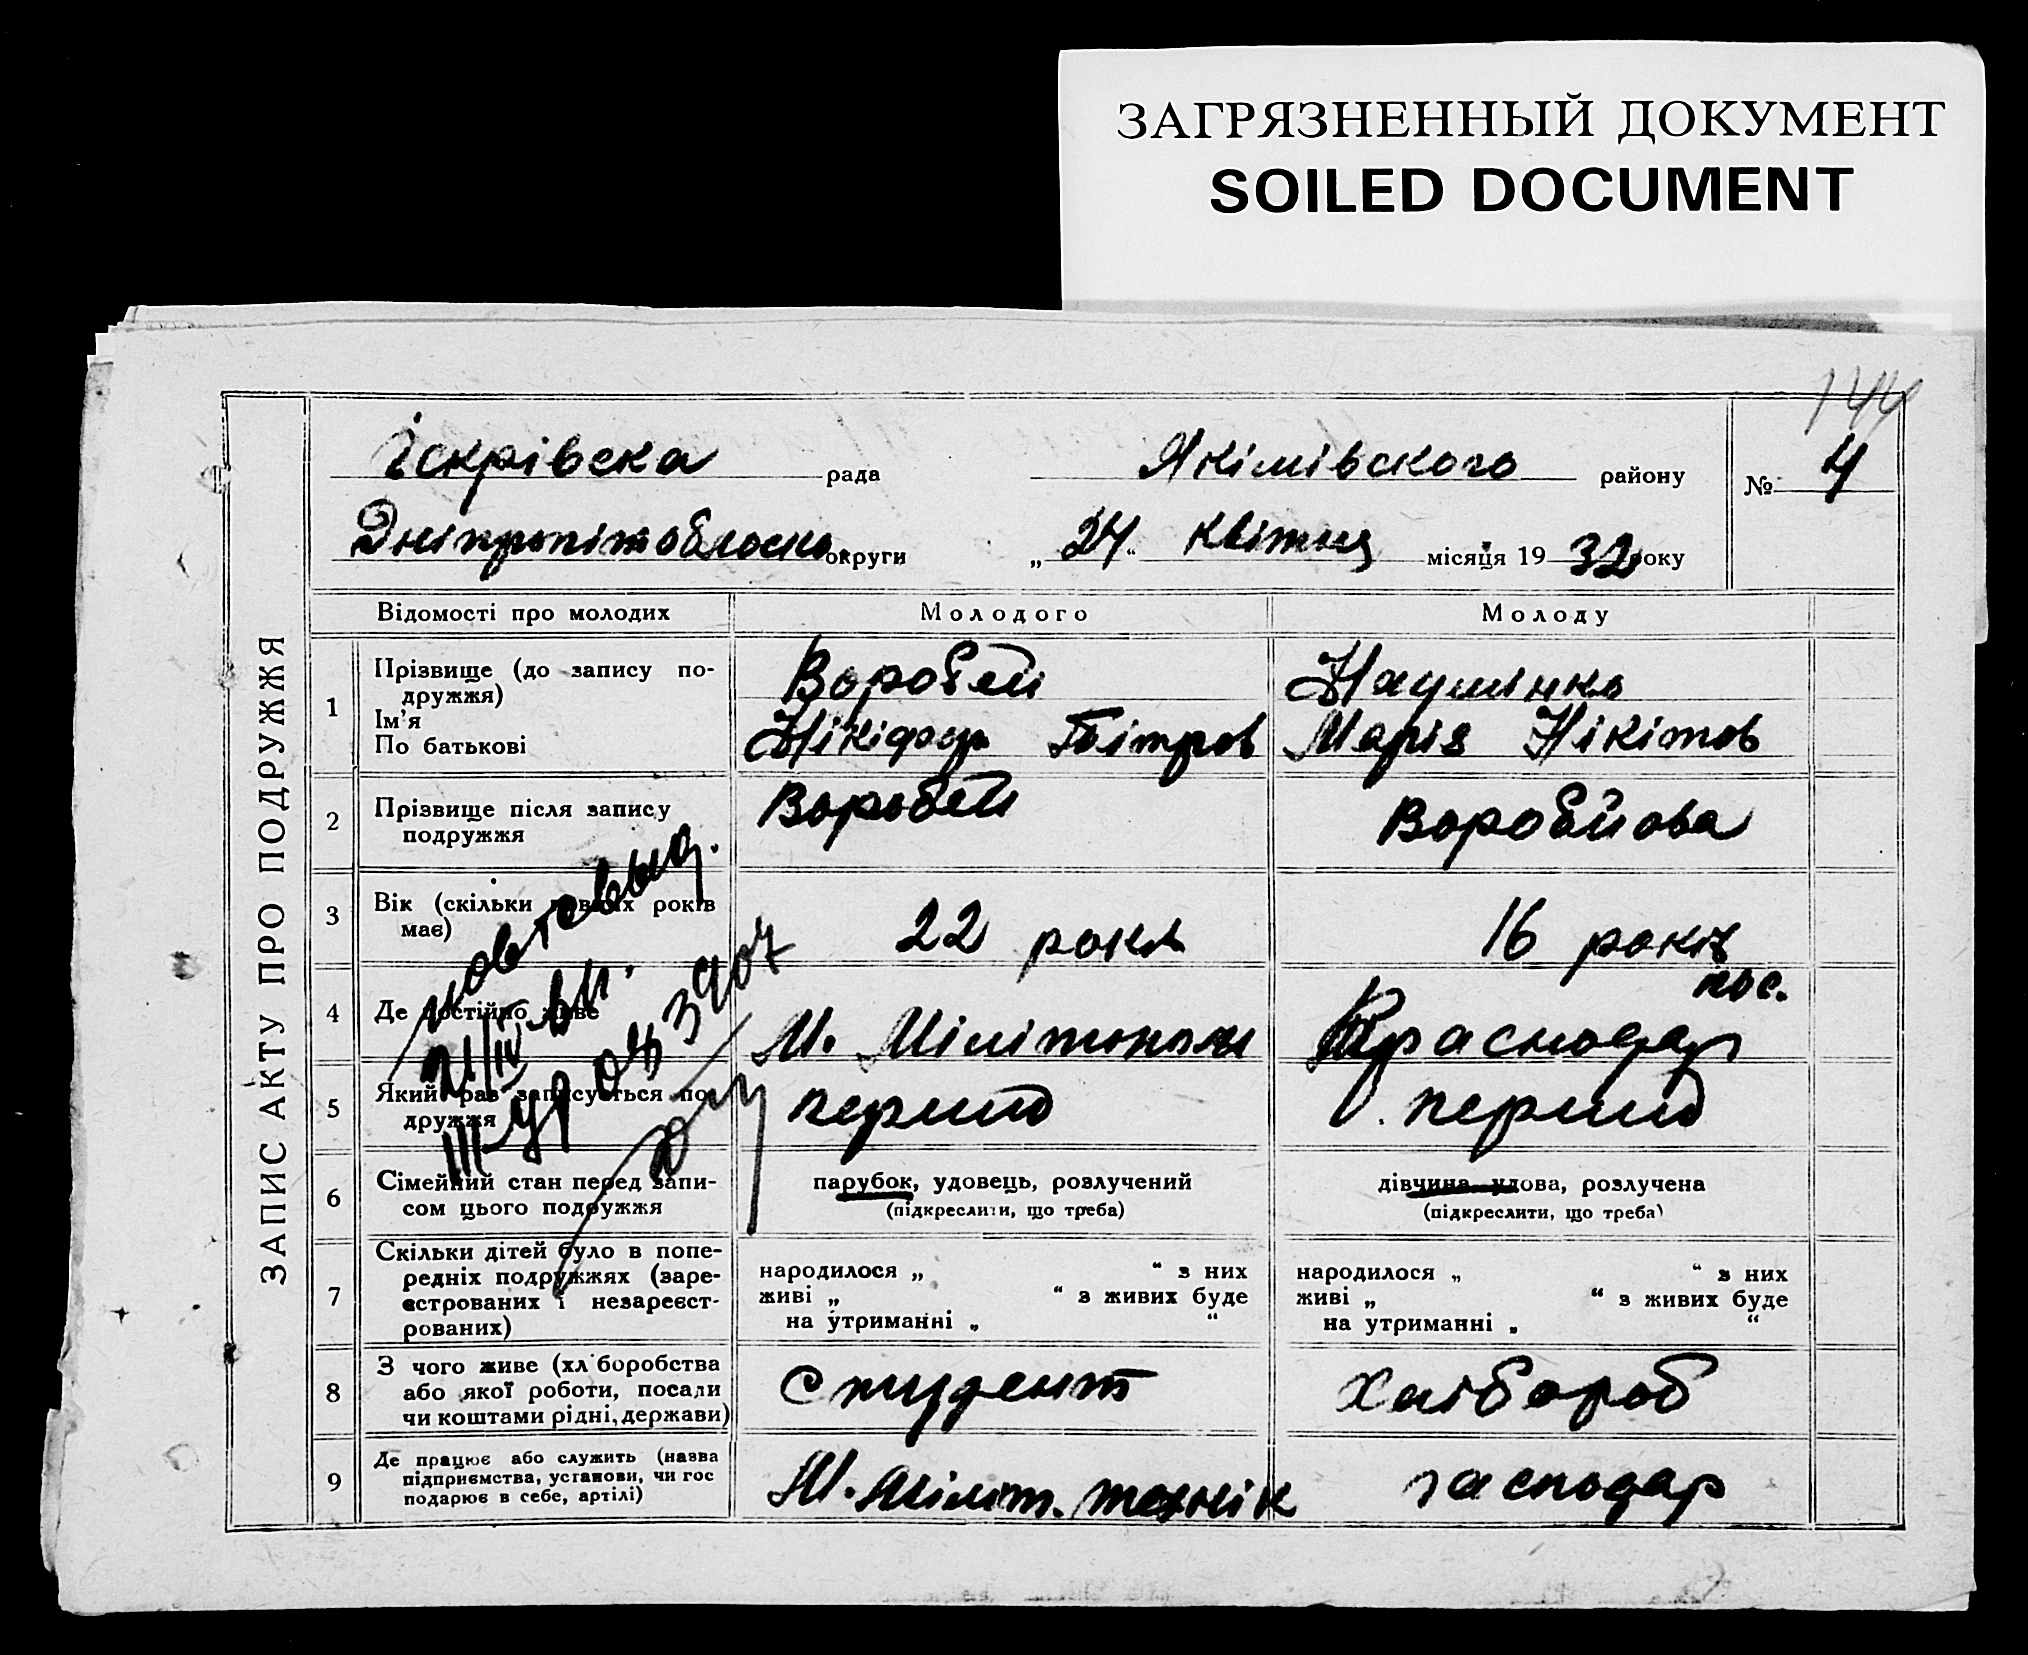 ЗАГРЯЗНЕННЫЙ ДОКУМЕНТ
SOILED DOCUMENT
144
ЗАПИС АКТУ ПРО ПОДРУЖЖЯ
Іскрівска рада Якімівского району № 4
округи „24“ квітня місяця 1932 року
Відомості про молодих Молодого Молоду
1 Прізвище (до запису по-
дружжя)
Ім’я
По батькові
Воробей
Нікіфор Пітров
Наумінко
Марія Нікітов
2 Прізвище після запису
подружжя
Воробей
Воробйова
3 Вік (скільки повних років
має)
22 роки
16 років
4 Де постійно живе
М. Мілітополи
пос.
Краснодар
5 Який раз записується по-
дружжя
перший
перший
21/IV
III УР 03 3907
6 Сімейний стан перед запи-
сом цього подружжя
парубок, удовець, розлучений
(підкреслити, що треба)
дівчина, удова, розлучена
(підкреслити, що треба)
7 Скільки дітей було в попе-
редніх подружжях (заре-
єстрованих і незареєст-
рованих)
народилося „ “ з них
живі „ “ з живих буде
на утриманні „ “
народилося „ “ з них
живі „ “ з живих буде
на утриманні „ “
8 З чого живе (хліборобства
або якої роботи, посади
чи коштами рідні, держави)
Студент
Хлібороб
9 Де працює або служить (назва
підприємства, установи, чи гос
подарює в себе, артілі)
М. Міліт. технік
господар